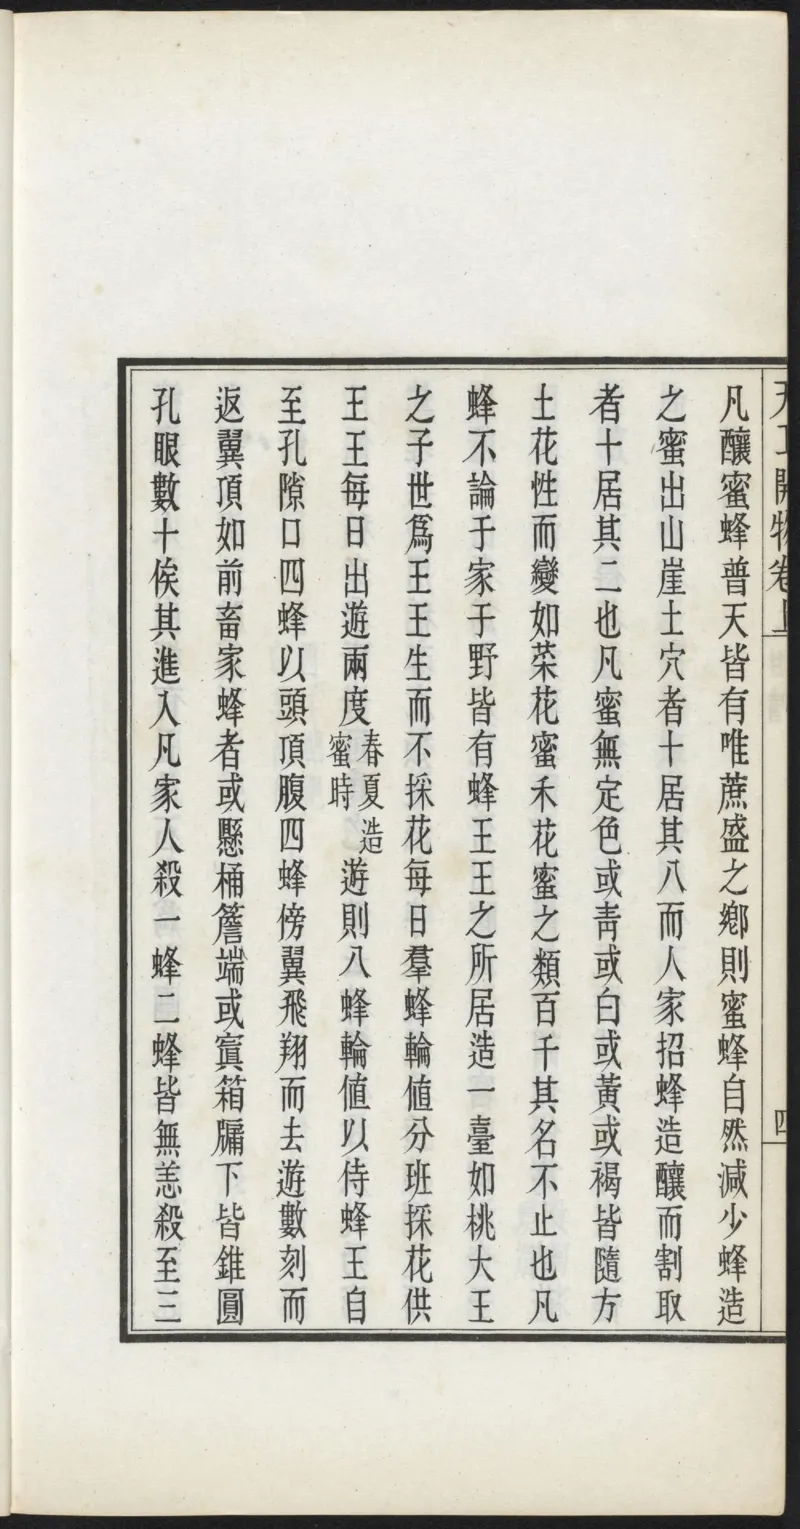 天工開物卷上
四
凡釀蜜蜂普天皆有唯蔗盛之鄉則蜜蜂自然減少蜂造
之蜜出山崖土穴者十居其八而人家招蜂造釀而割取
者十居其二也凡蜜無定色或靑或白或黃或褐皆隨方
土花性而變如菜花蜜禾花蜜之類百千其名不止也凡
蜂不論于家于野皆有蜂王王之所居造一臺如桃大王
之子世爲王王生而不採花每日羣蜂輪值分班採花供
王王每日出遊兩度春夏造蜜時遊則八蜂輪値以侍蜂王自
至孔隙口四蜂以頭頂腹四蜂傍翼飛翔而去遊數刻而
返翼頂如前畜家蜂者或懸桶簷端或窴箱牖下皆錐圓
孔眼數十俟其進入凡家人殺一蜂二蜂皆無恙殺至三